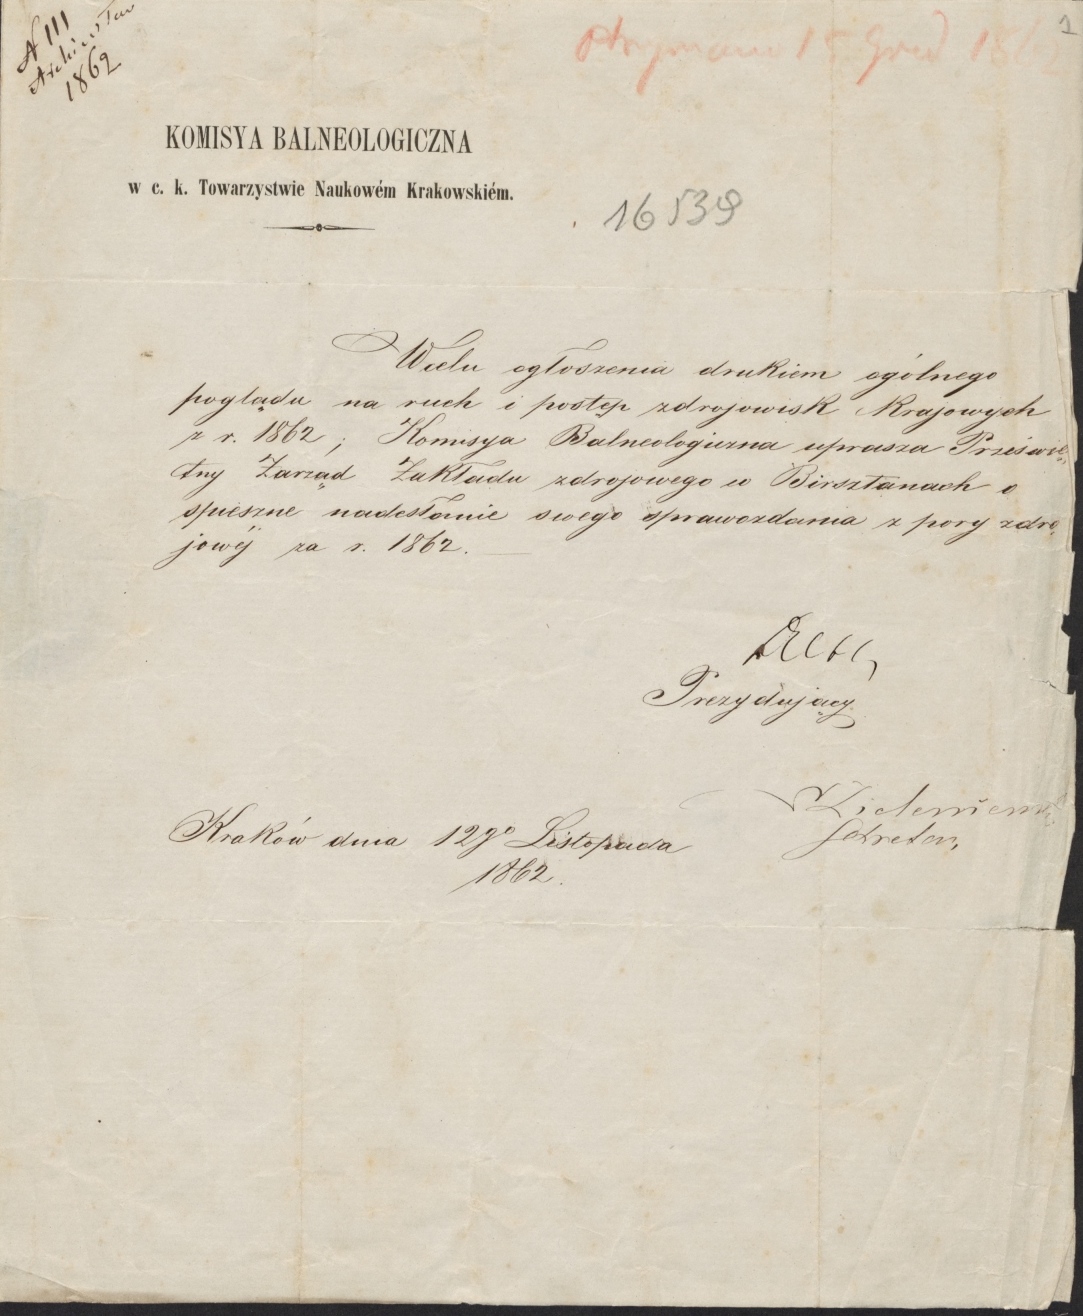 N III
1862
Otrzymano 15 Grud 1862
1
KOMISYA BALNEOLOGICZNA
w c. k. Towarzystwie Naukowém Krakowskiém.
16539
W celu ogłoszenia drukiem ogólnego
poglądu na ruch i postęp zdrojowisk Krajowych
z r. 1862, Komisya Balneologiczna uprasza Prześwie-
tny Zarząd Zakładu zdrojowego w Birsztanach o
spieszne nadesłanie swego sprawozdania z pory zdro-
jowéj za r. 1862.
Prezydujący
Kraków dnia 12go Listopada
1862.
Sekretarz